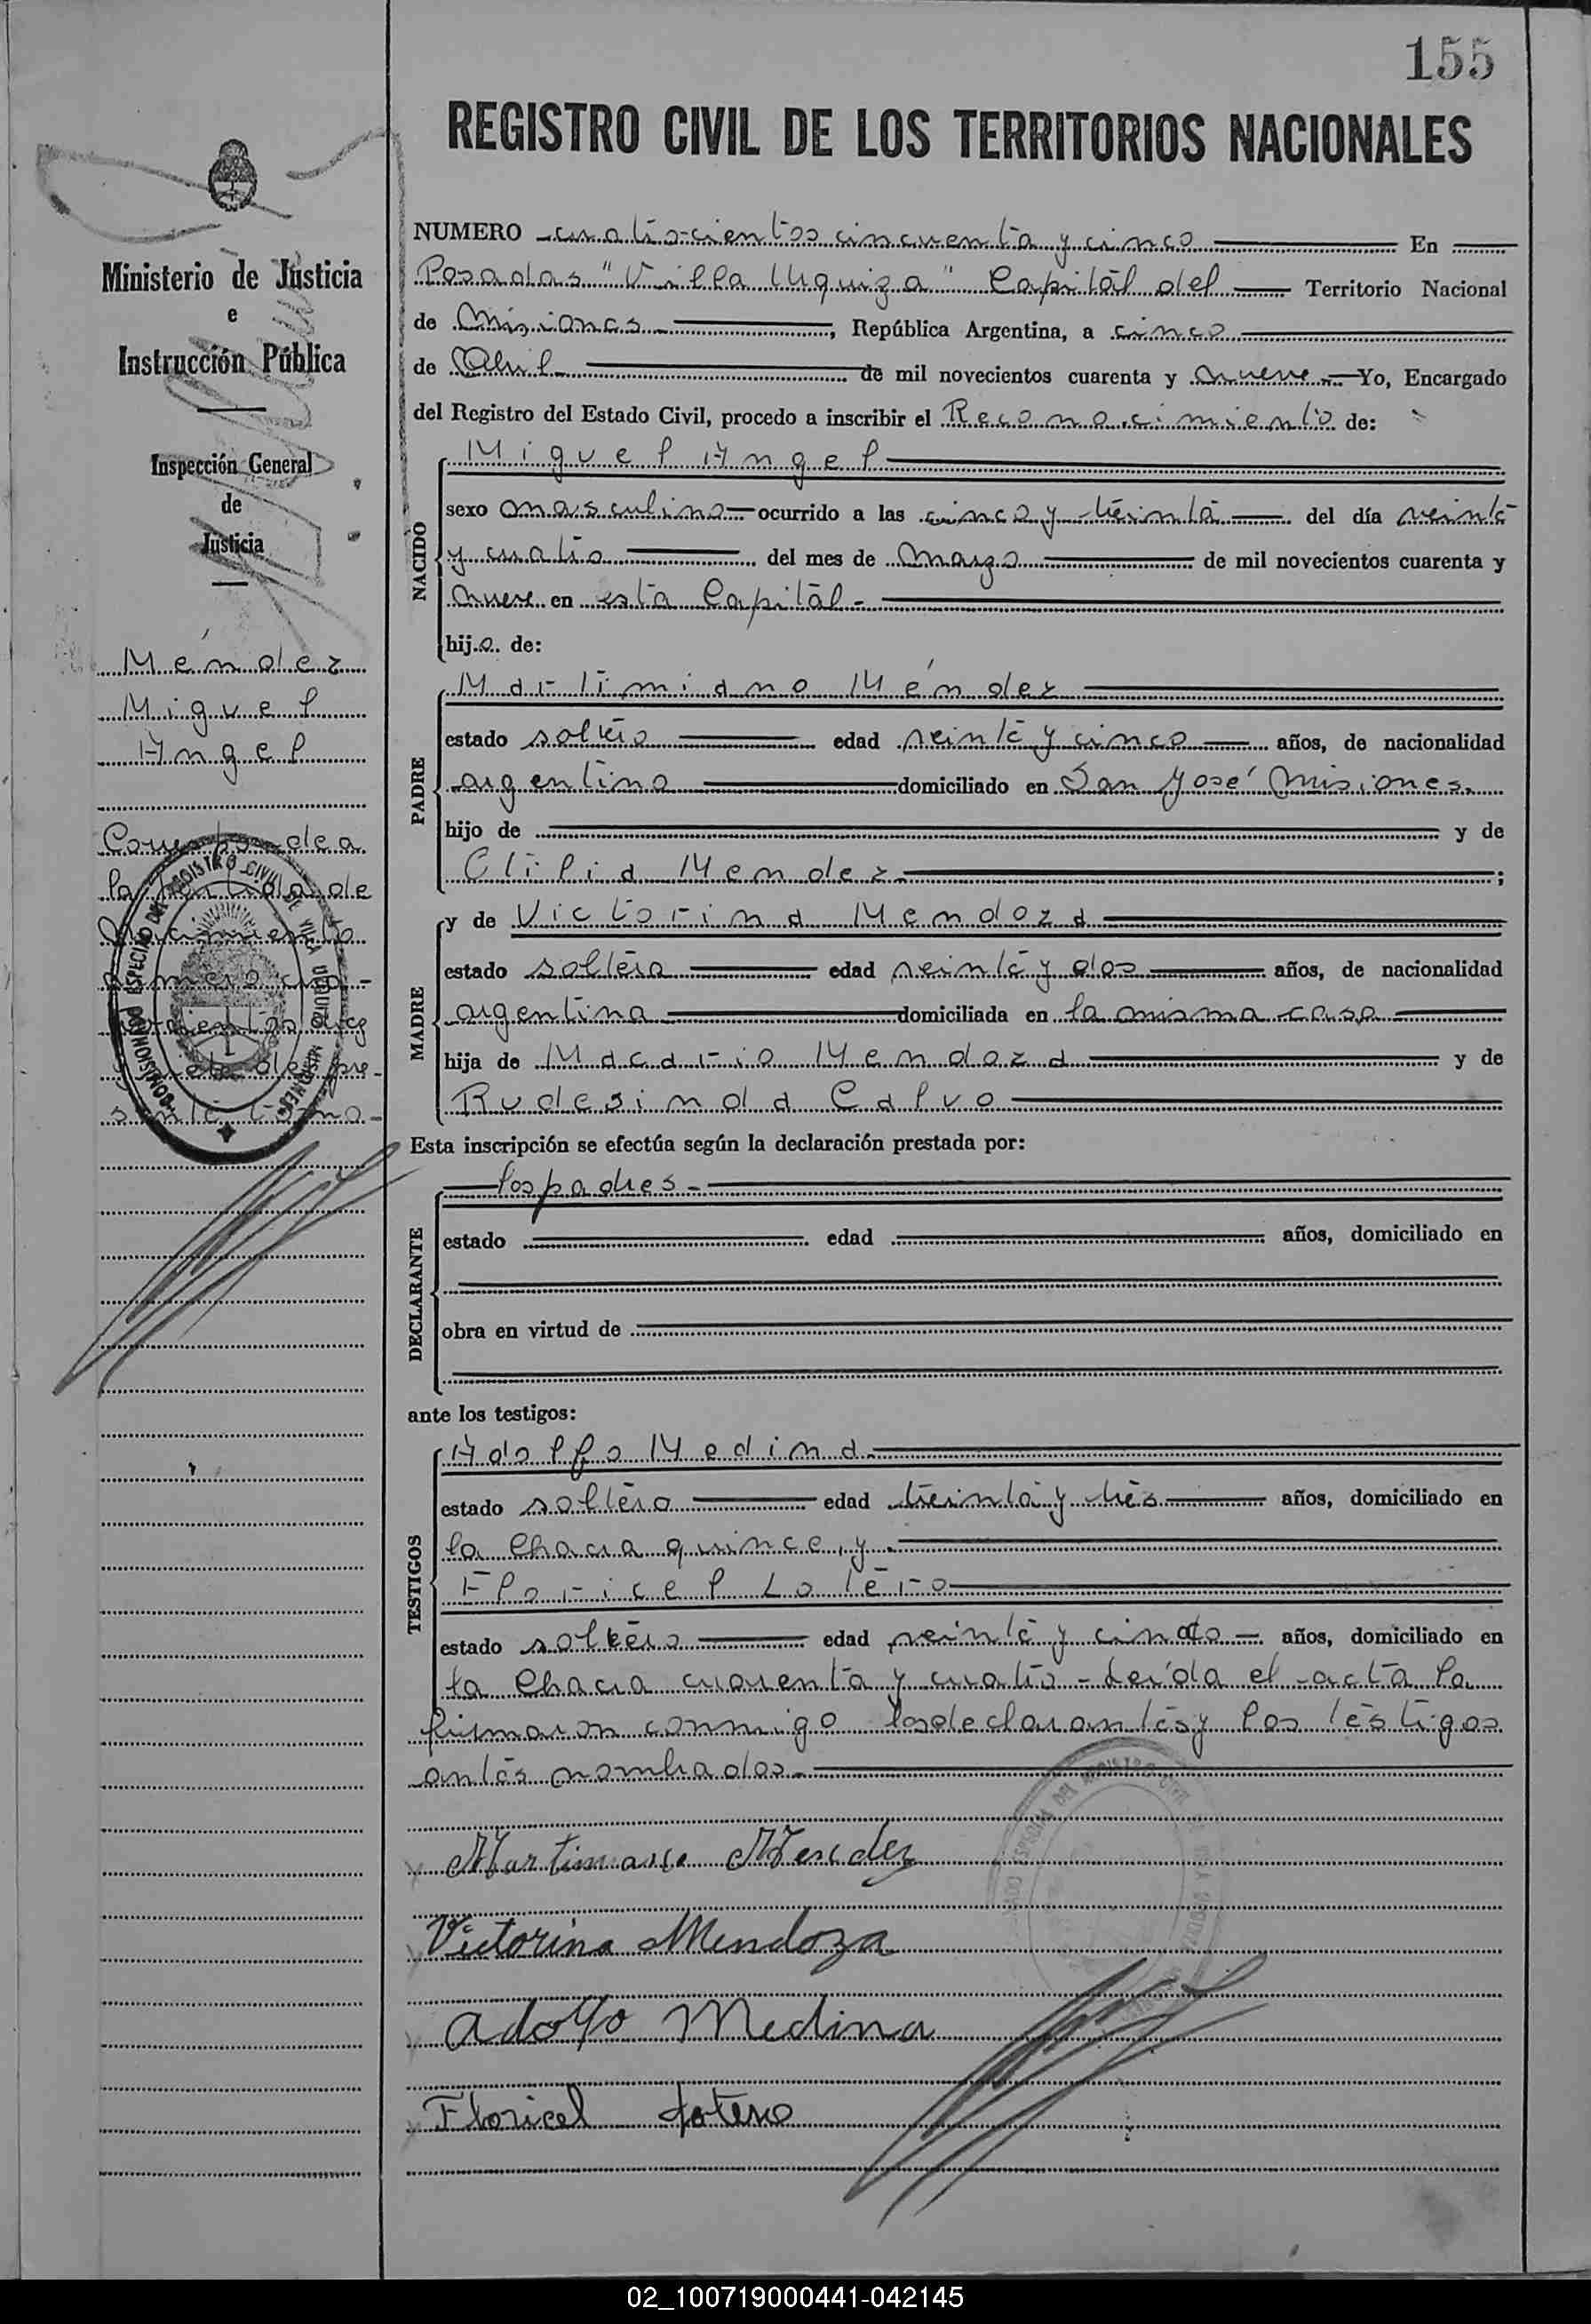 155
REGISTRO CIVIL DE LOS TERRITORIOS NACIONALES
Ministerio de Justicia
e
Instrucción Pública
Inspección General
de
Justicia
Méndez
Miguel
Angel
Corresponde a
la partida de
Nacimiento
número cua-
trocientos
de pre-
sente tomo-
COMISIONADO ESPECIAL DEL REGISTRO CIVIL DE VILLA URQUIZA MISIONES
NUMERO cuatrocientos cincuenta y cinco En
Posadas "Villa Urquiza" Capital del Territorio Nacional
de Misiones, República Argentina, a cinco
de Abril de mil novecientos cuarenta y nueve Yo, Encargado
del Registro del Estado Civil, procedo a inscribir el Reconocimiento de:
NACIDO
Miguel Angel
sexo masculino ocurrido a las cinco y treinta del día veinte
y cuatro del mes de marzo de mil novecientos cuarenta y
nueve en esta Capital-
hijo de:
PADRE
Martimiano Méndez
estado soltero edad veinte y cinco años, de nacionalidad
argentino domiciliado en San José Misiones.
hijo de y de
Otilia Mendez ;
MADRE
y de Victorina Mendoza
estado soltera edad veinte y dos años, de nacionalidad
argentina domiciliada en la misma casa
hija de Macario Mendoza y de
Rudesinda Calvo
Esta inscripción se efectúa según la declaración prestada por:
DECLARANTE
los padres-
estado edad años, domiciliado en
obra en virtud de
ante los testigos:
TESTIGOS
Adolfo Medina
estado soltero edad treinta y tres años, domiciliado en
la Chacra quince, y
Floricel Lotero
estado soltero edad veinte y cinco años, domiciliado en
la Chacra cuarenta y cuatro - Leída el acta la
firmaron conmigo los declarantes y los testigos
antes nombrados.-
Martimiano Mendez
Victorina Mendoza
Adolfo Medina
Floricel Lotero
02_100719000441-042145